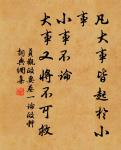 凡大事皆起於小
事
小事不論
大事又將不可救
貞觀政要卷一論政體
詞典網集